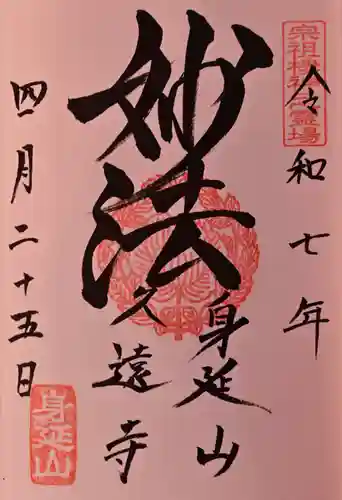 宗祖棲神霊場
令和七年
妙法
身延山
久遠寺
四月二十五日
身延山